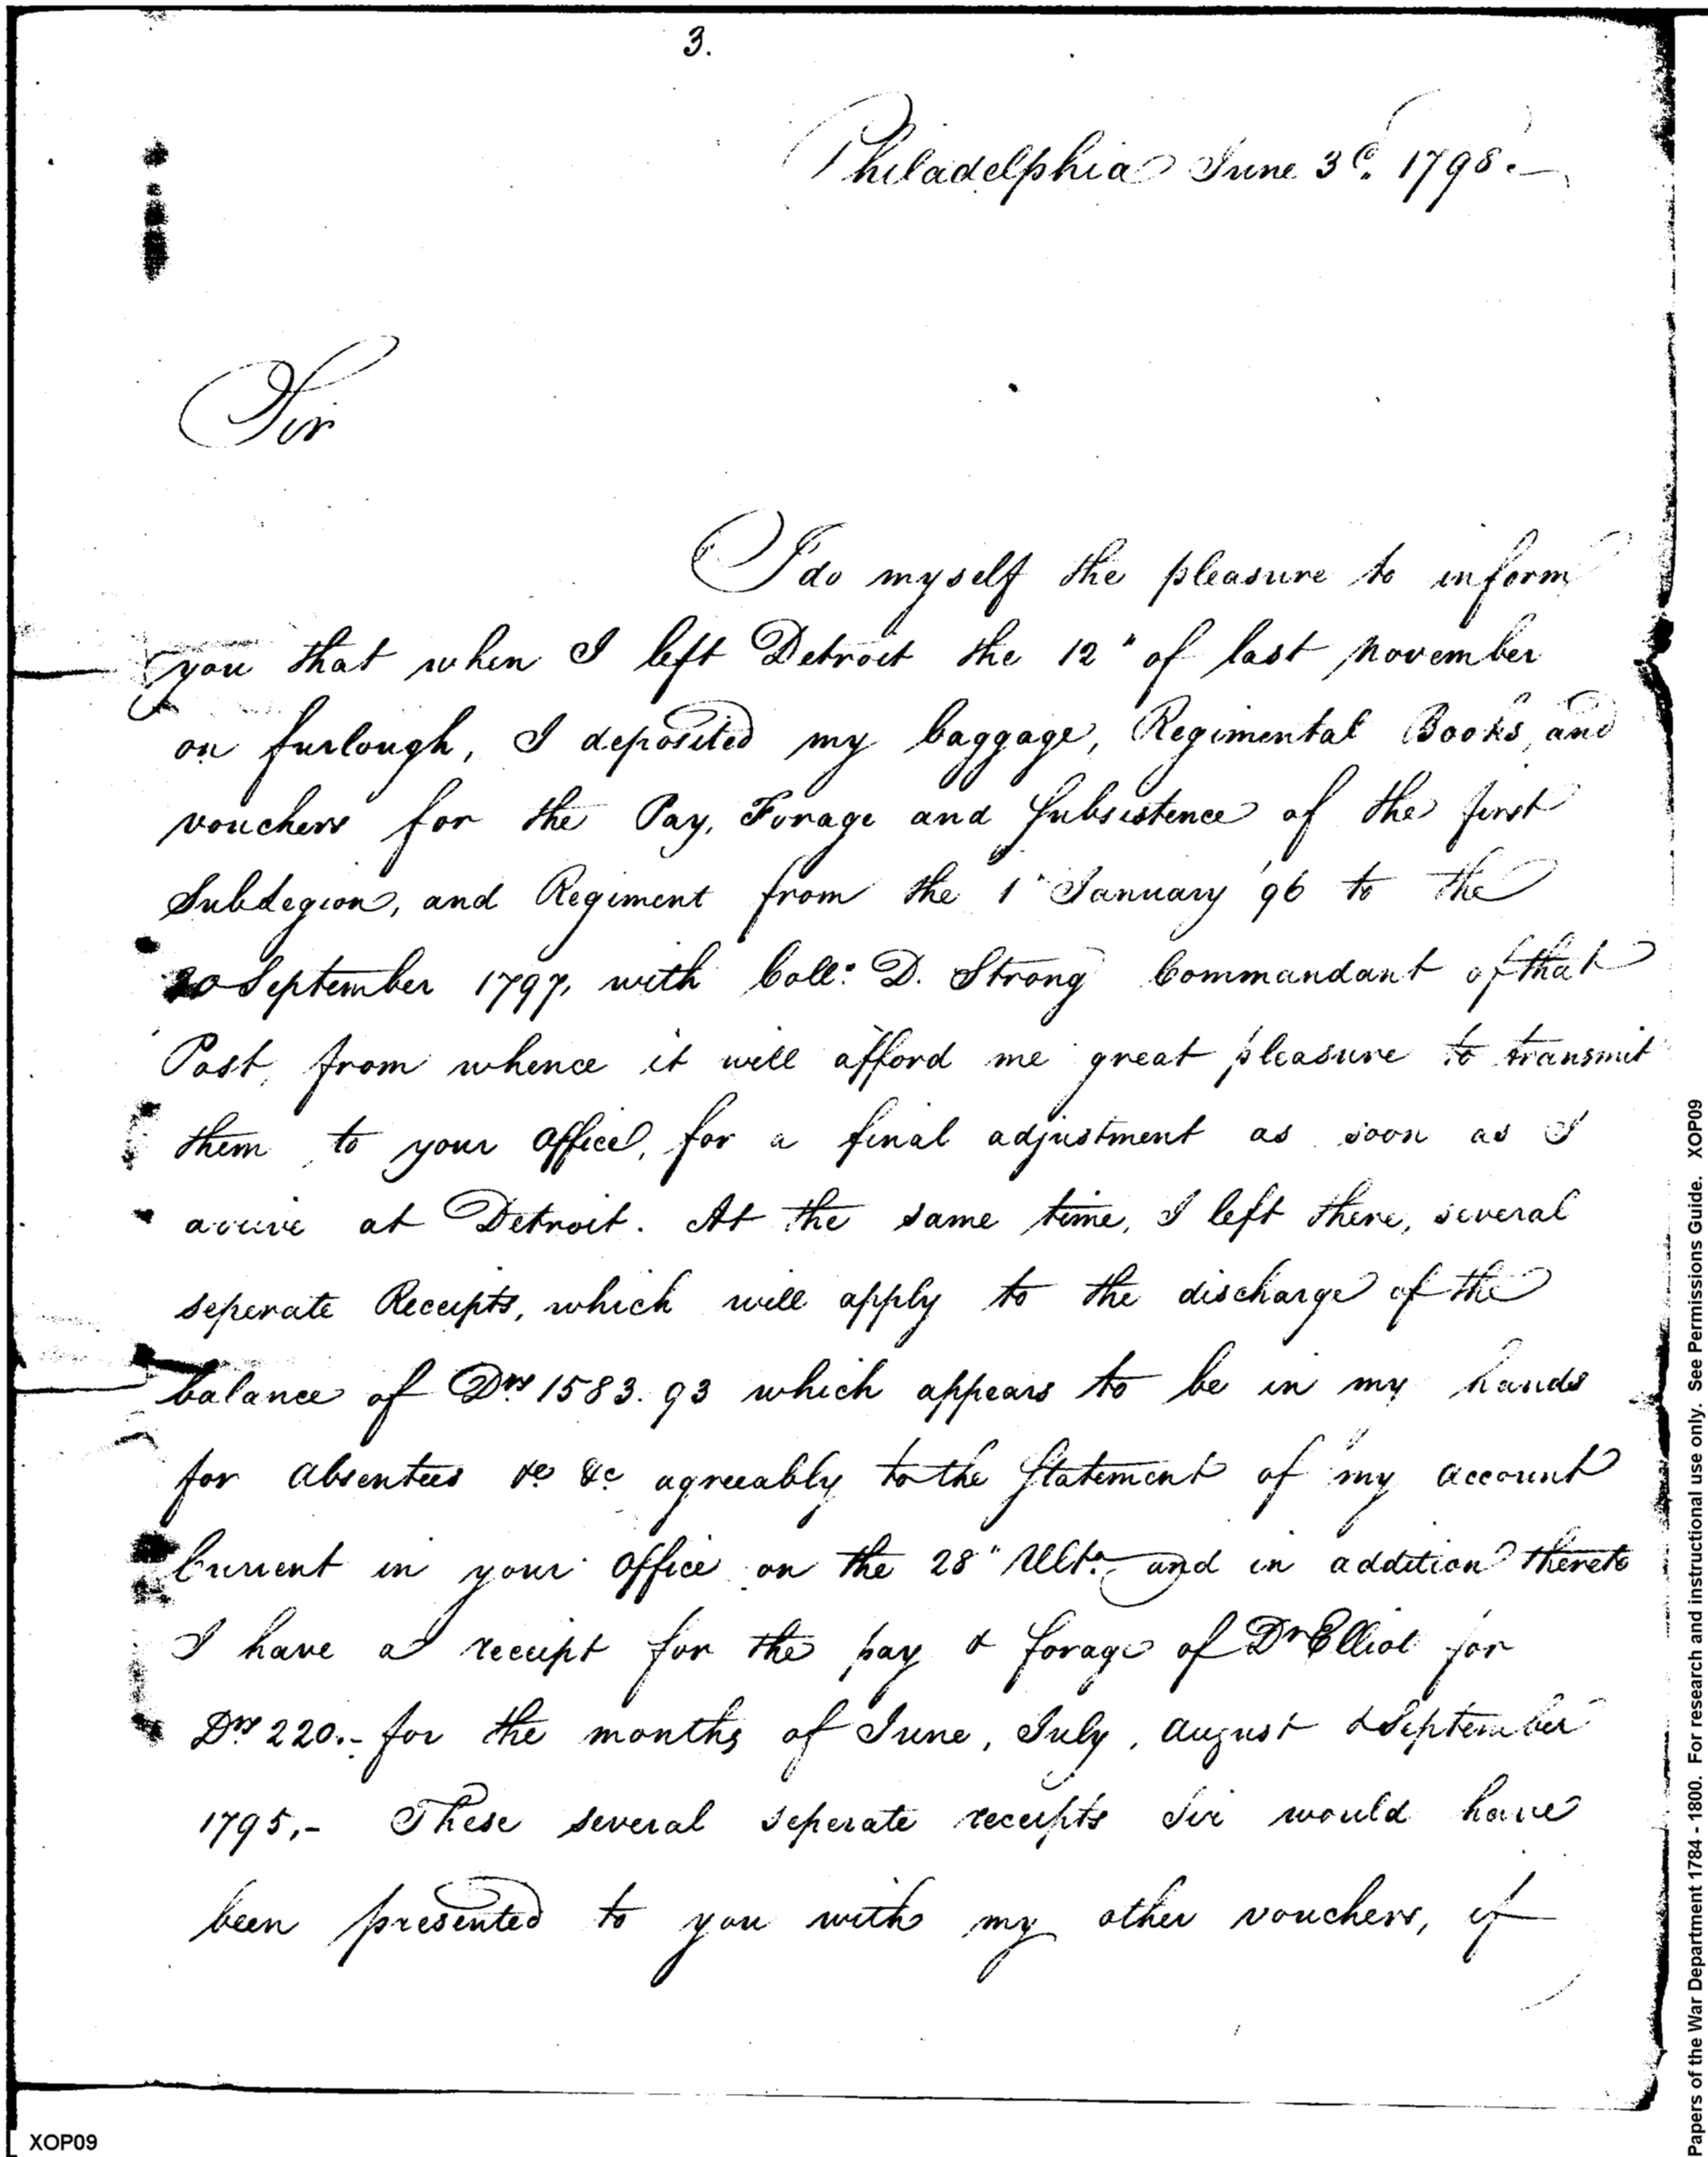 3.
Philadelphia June 3d. 1798.—
Sir
I do myself the pleasure to inform
you that when I left Detroit the 12" of last November
on furlough, I deposited my baggage, Regimental Books, and
vouchers for the Pay, Forage and Subsistence of the first
SubLegion, and Regiment from the 1" January 96 to the
30 September 1797, with Coll: D. Strong Commandant of that
Post, from whence it will afford me great pleasure to transmit
them to your office, for a final adjustment as soon as I
arrive at Detroit. At the same time, I left there, several
seperate Receipts, which will apply to the discharge of the
balance of Drs 1583.93 which appears to be in my hands
for absentees &c &c agreeably to the Statement of my account
Current in your office on the 28" Ulto. and in addition thereto
I have a receipt for the pay & forage of Dr Elliot for
Drs 220.- for the months of June, July, August & September
1795,- These several seperate receipts Sir would have
been presented to you with my other vouchers, if
XOP09
Papers of the War Department 1784 - 1800. For research and instructional use only. See Permissions Guide. XOP09